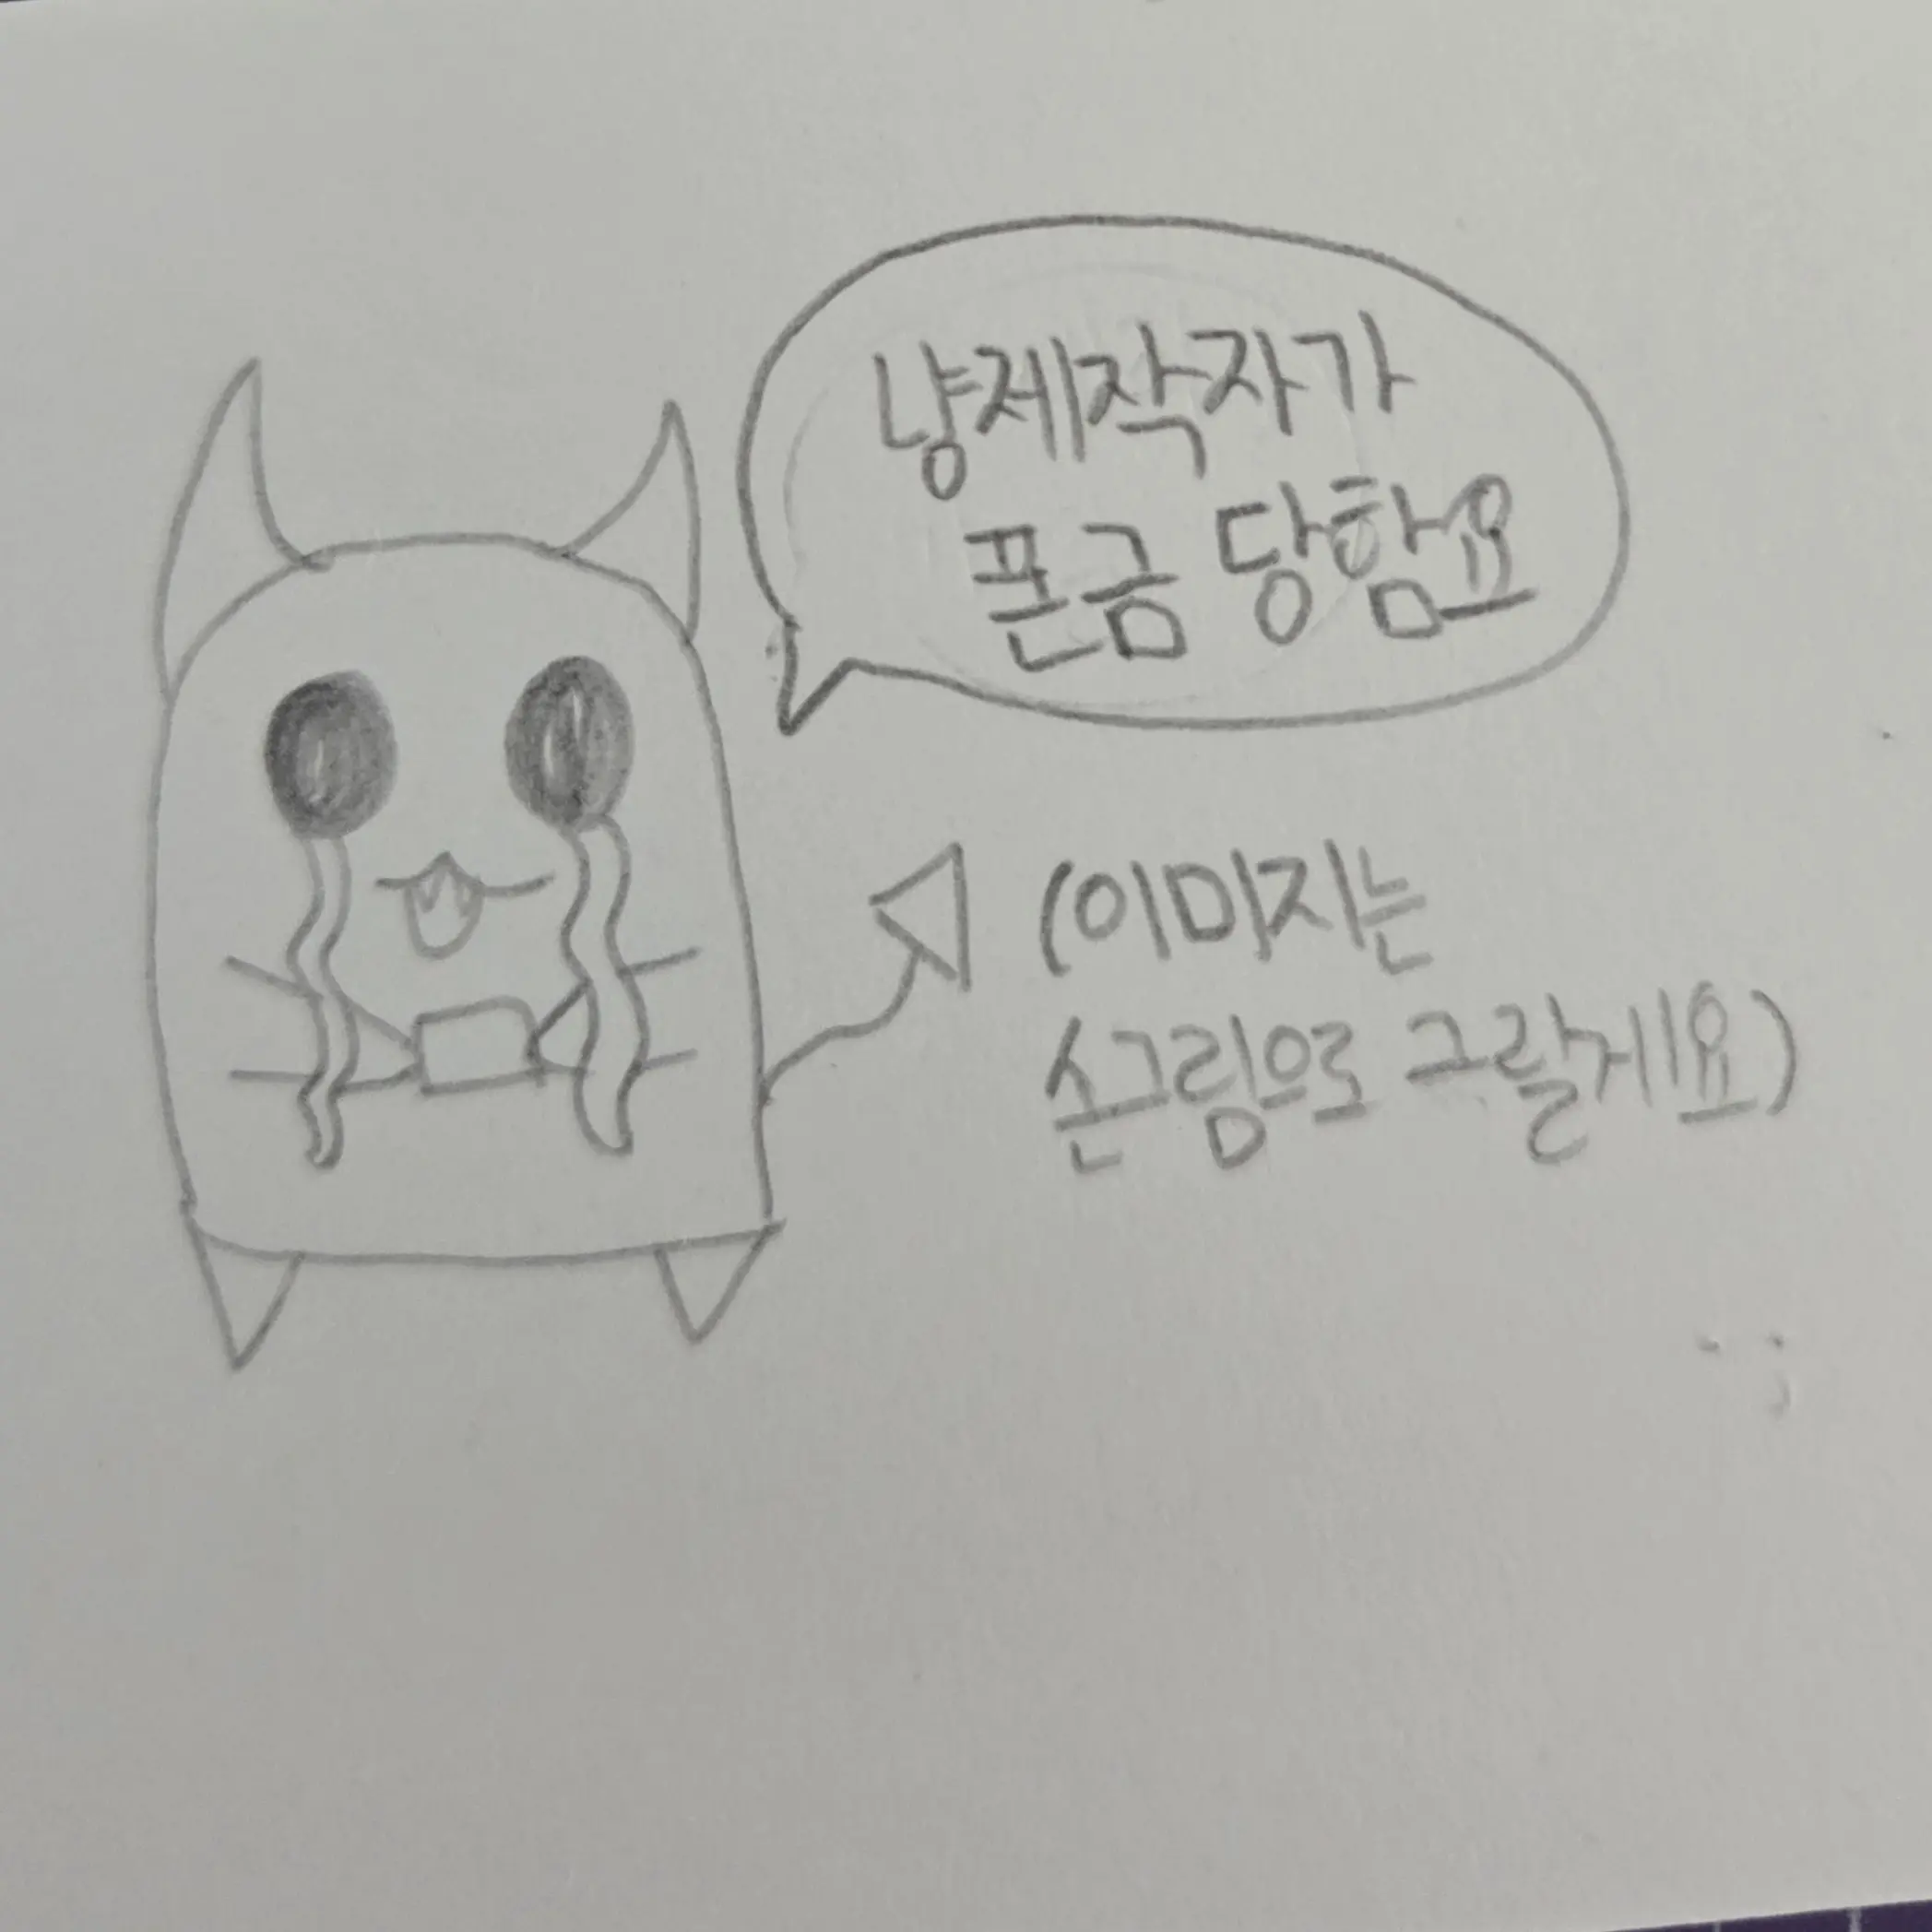 냥제작자가
폰금 당함요
(이미지는
손그림으로 그랄게요)